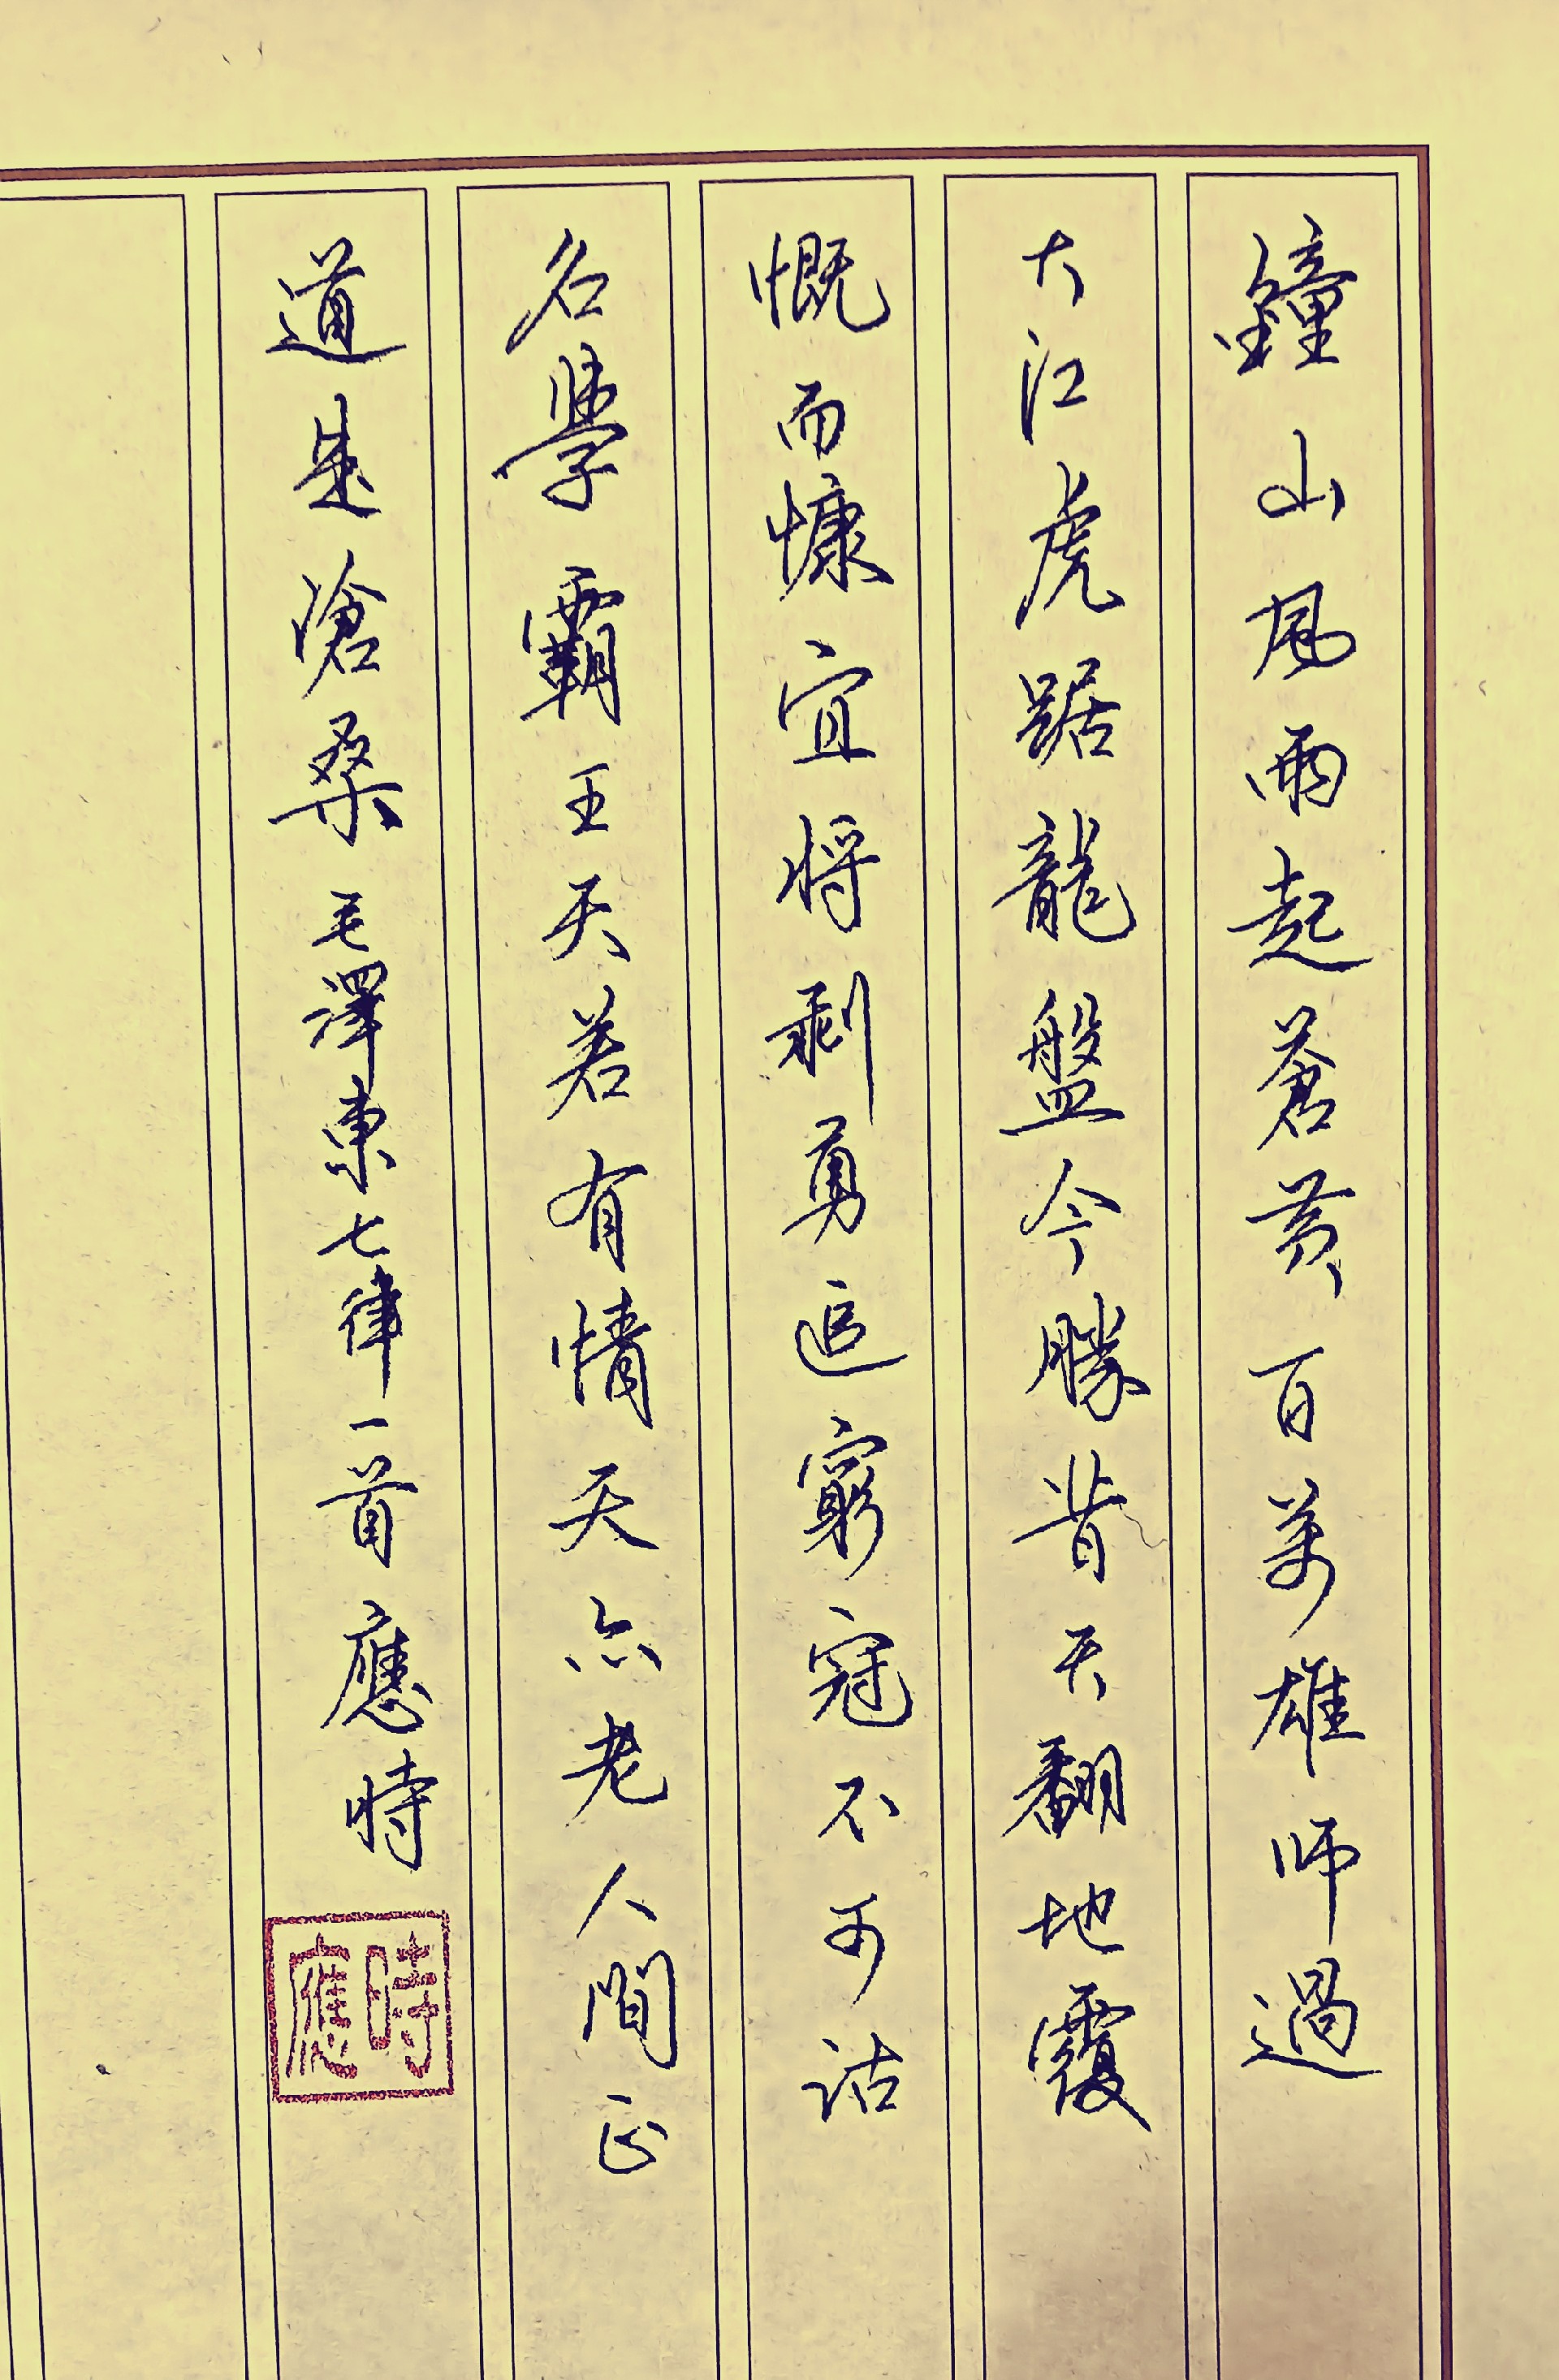 鐘山風雨起蒼黃百萬雄師過
大江虎踞龍盤今勝昔天翻地覆
慨而慷宜将剩勇追窮寇不可沽
名學霸王天若有情天亦老人間正
道是滄桑毛澤東七律一首應時
時應